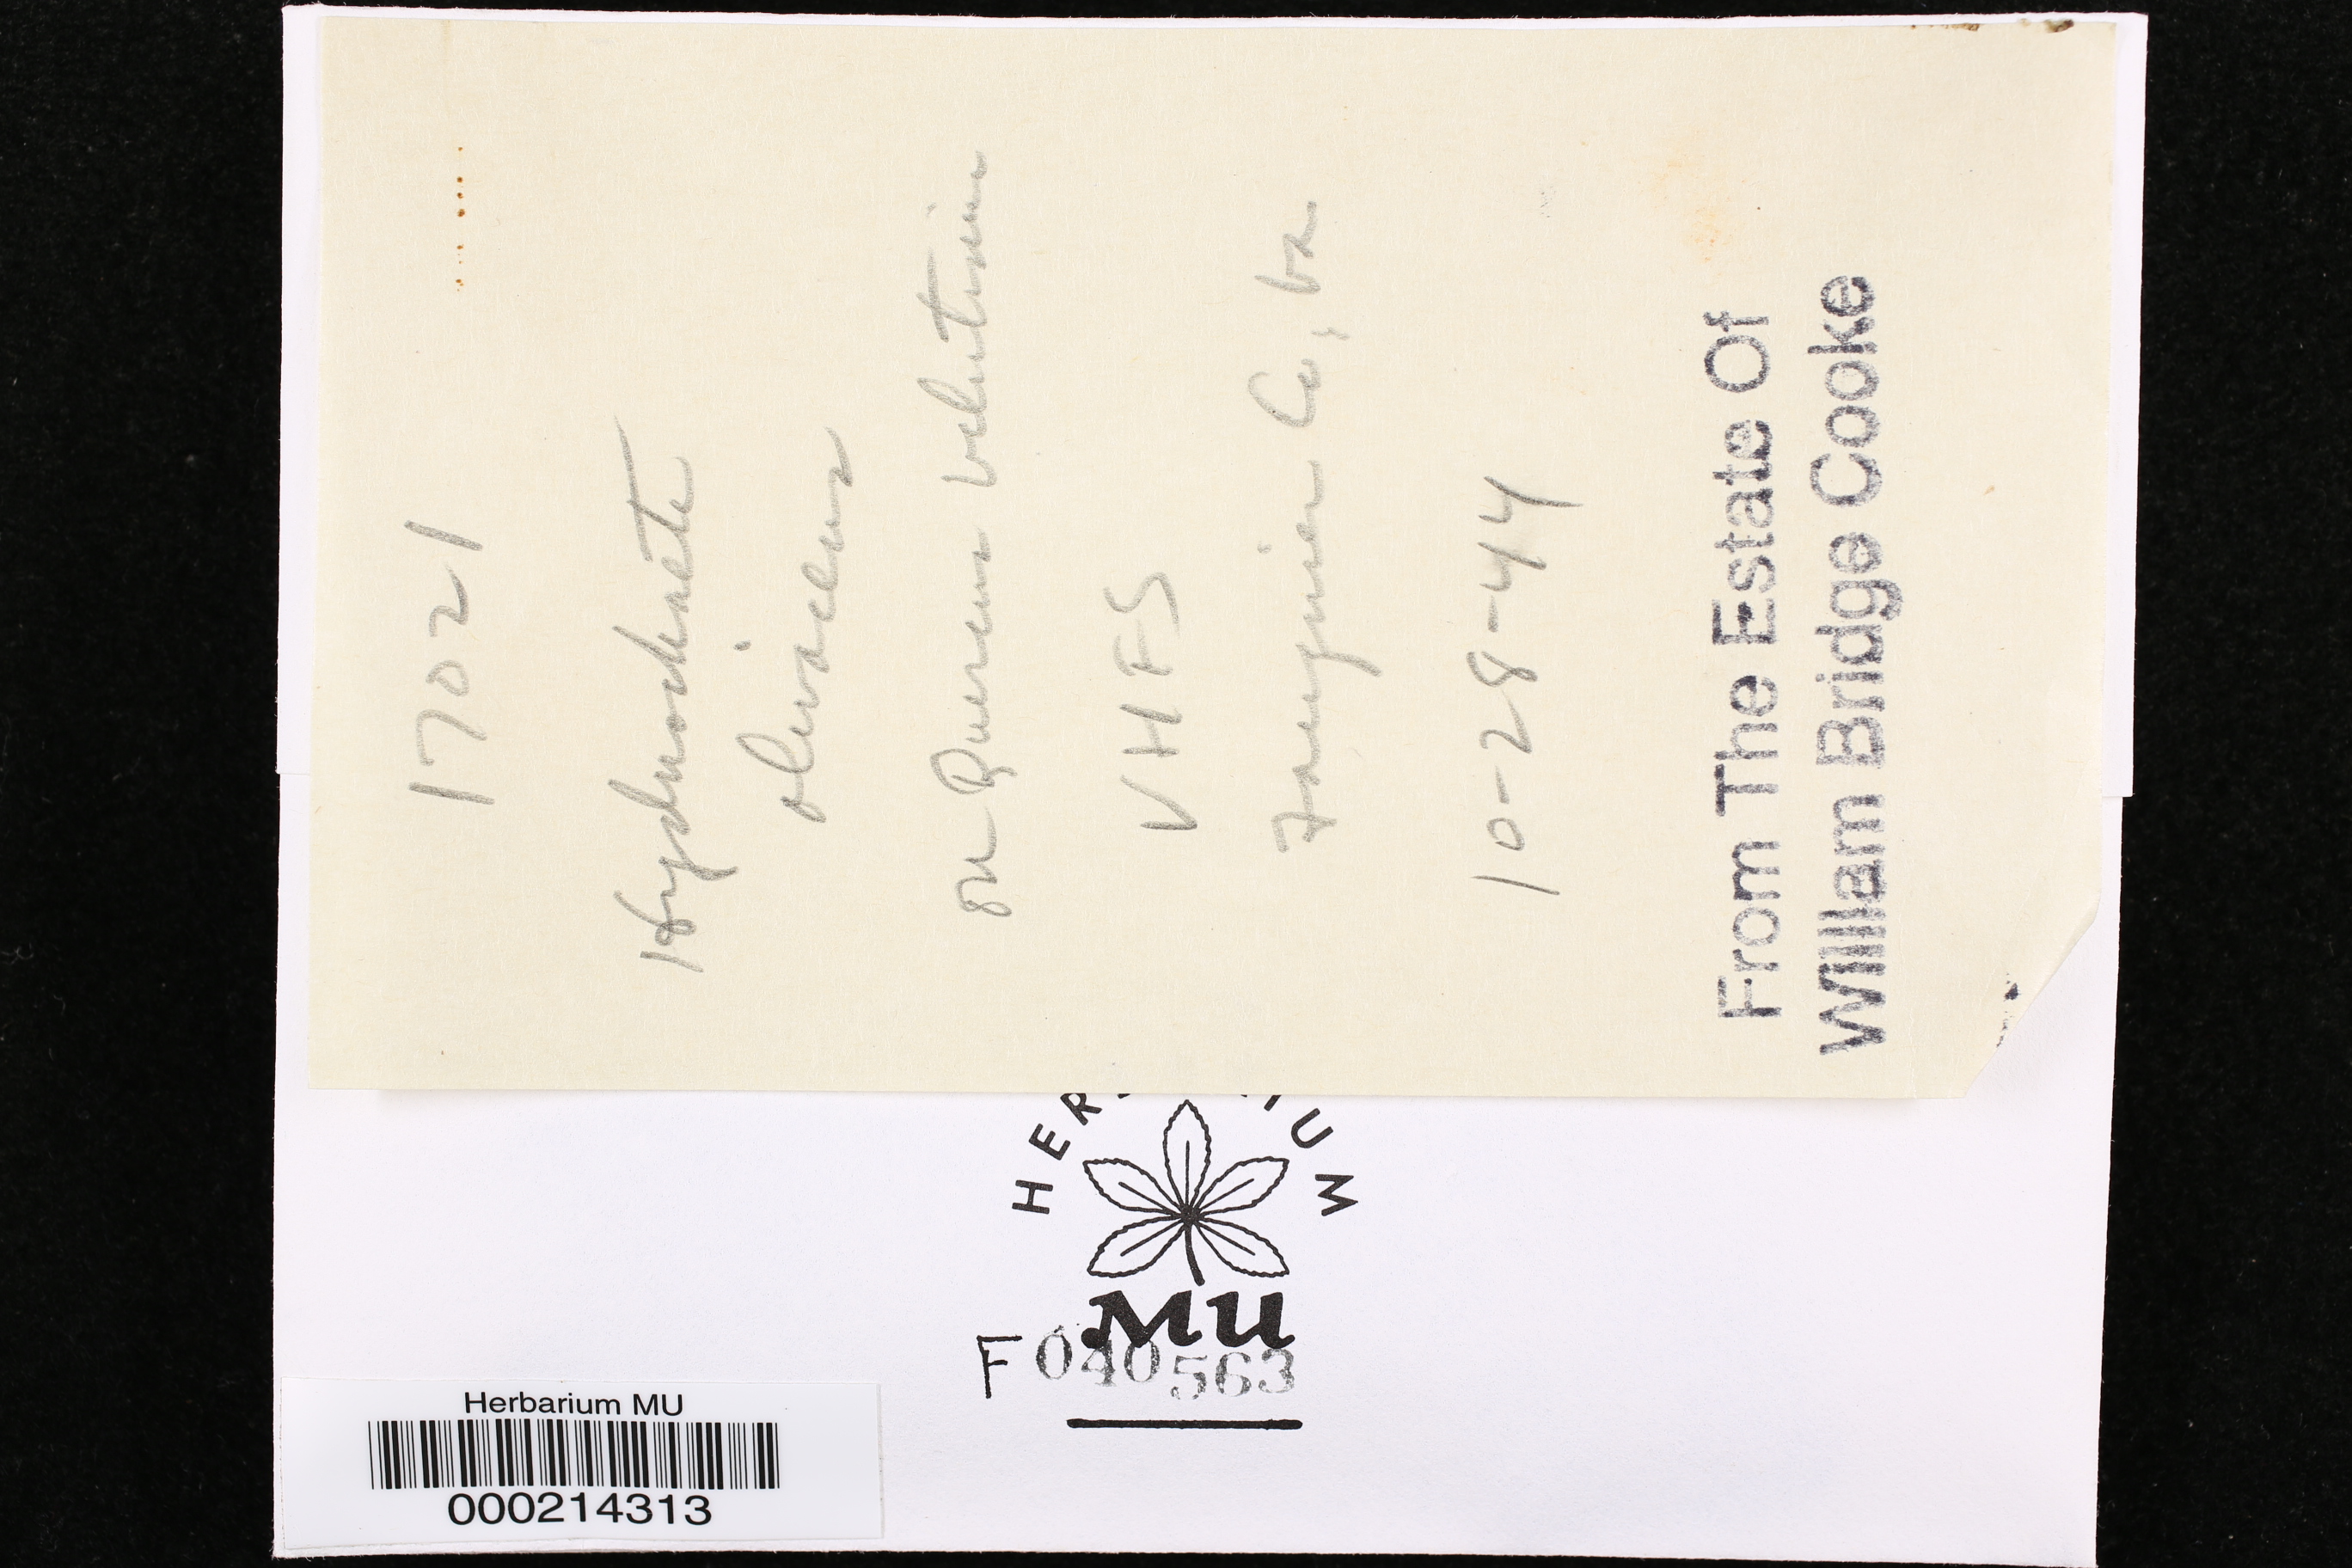 17021
Hydnochaete
olivaceus
on Quercus velutina
VHFS
Fauquier Co, Va
10-28-44
From The Estate Of
William Bridge Cooke
MU
F 040563
Herbarium MU
000214313